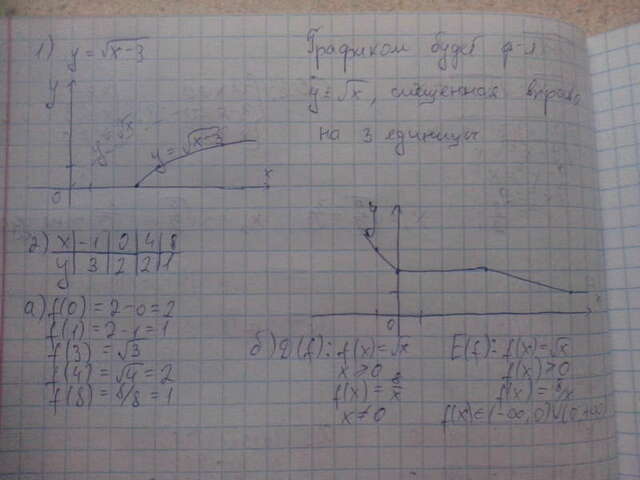 1) y = √x-3
Графиком будет ф-я
y = √x, смещенная вправо
на 3 единицы
y
y = √x
y = √x-3
x
0
2) x | -1 | 0 | 4 | 8
y | 3 | 2 | 2 | 1
y
x
0
а) f(0) = 2-0 = 2
f(1) = 2-1 = 1
f(3) = √3
f(4) = √4 = 2
f(8) = 8/8 = 1
б) D(f): f(x) = √x
x > 0
f(x) = 8/x
x ≠ 0
E(f): f(x) = √x
f(x) > 0
f(x) = 8/x
f(x) ∈ (-∞, 0) ∪ (0, +∞)